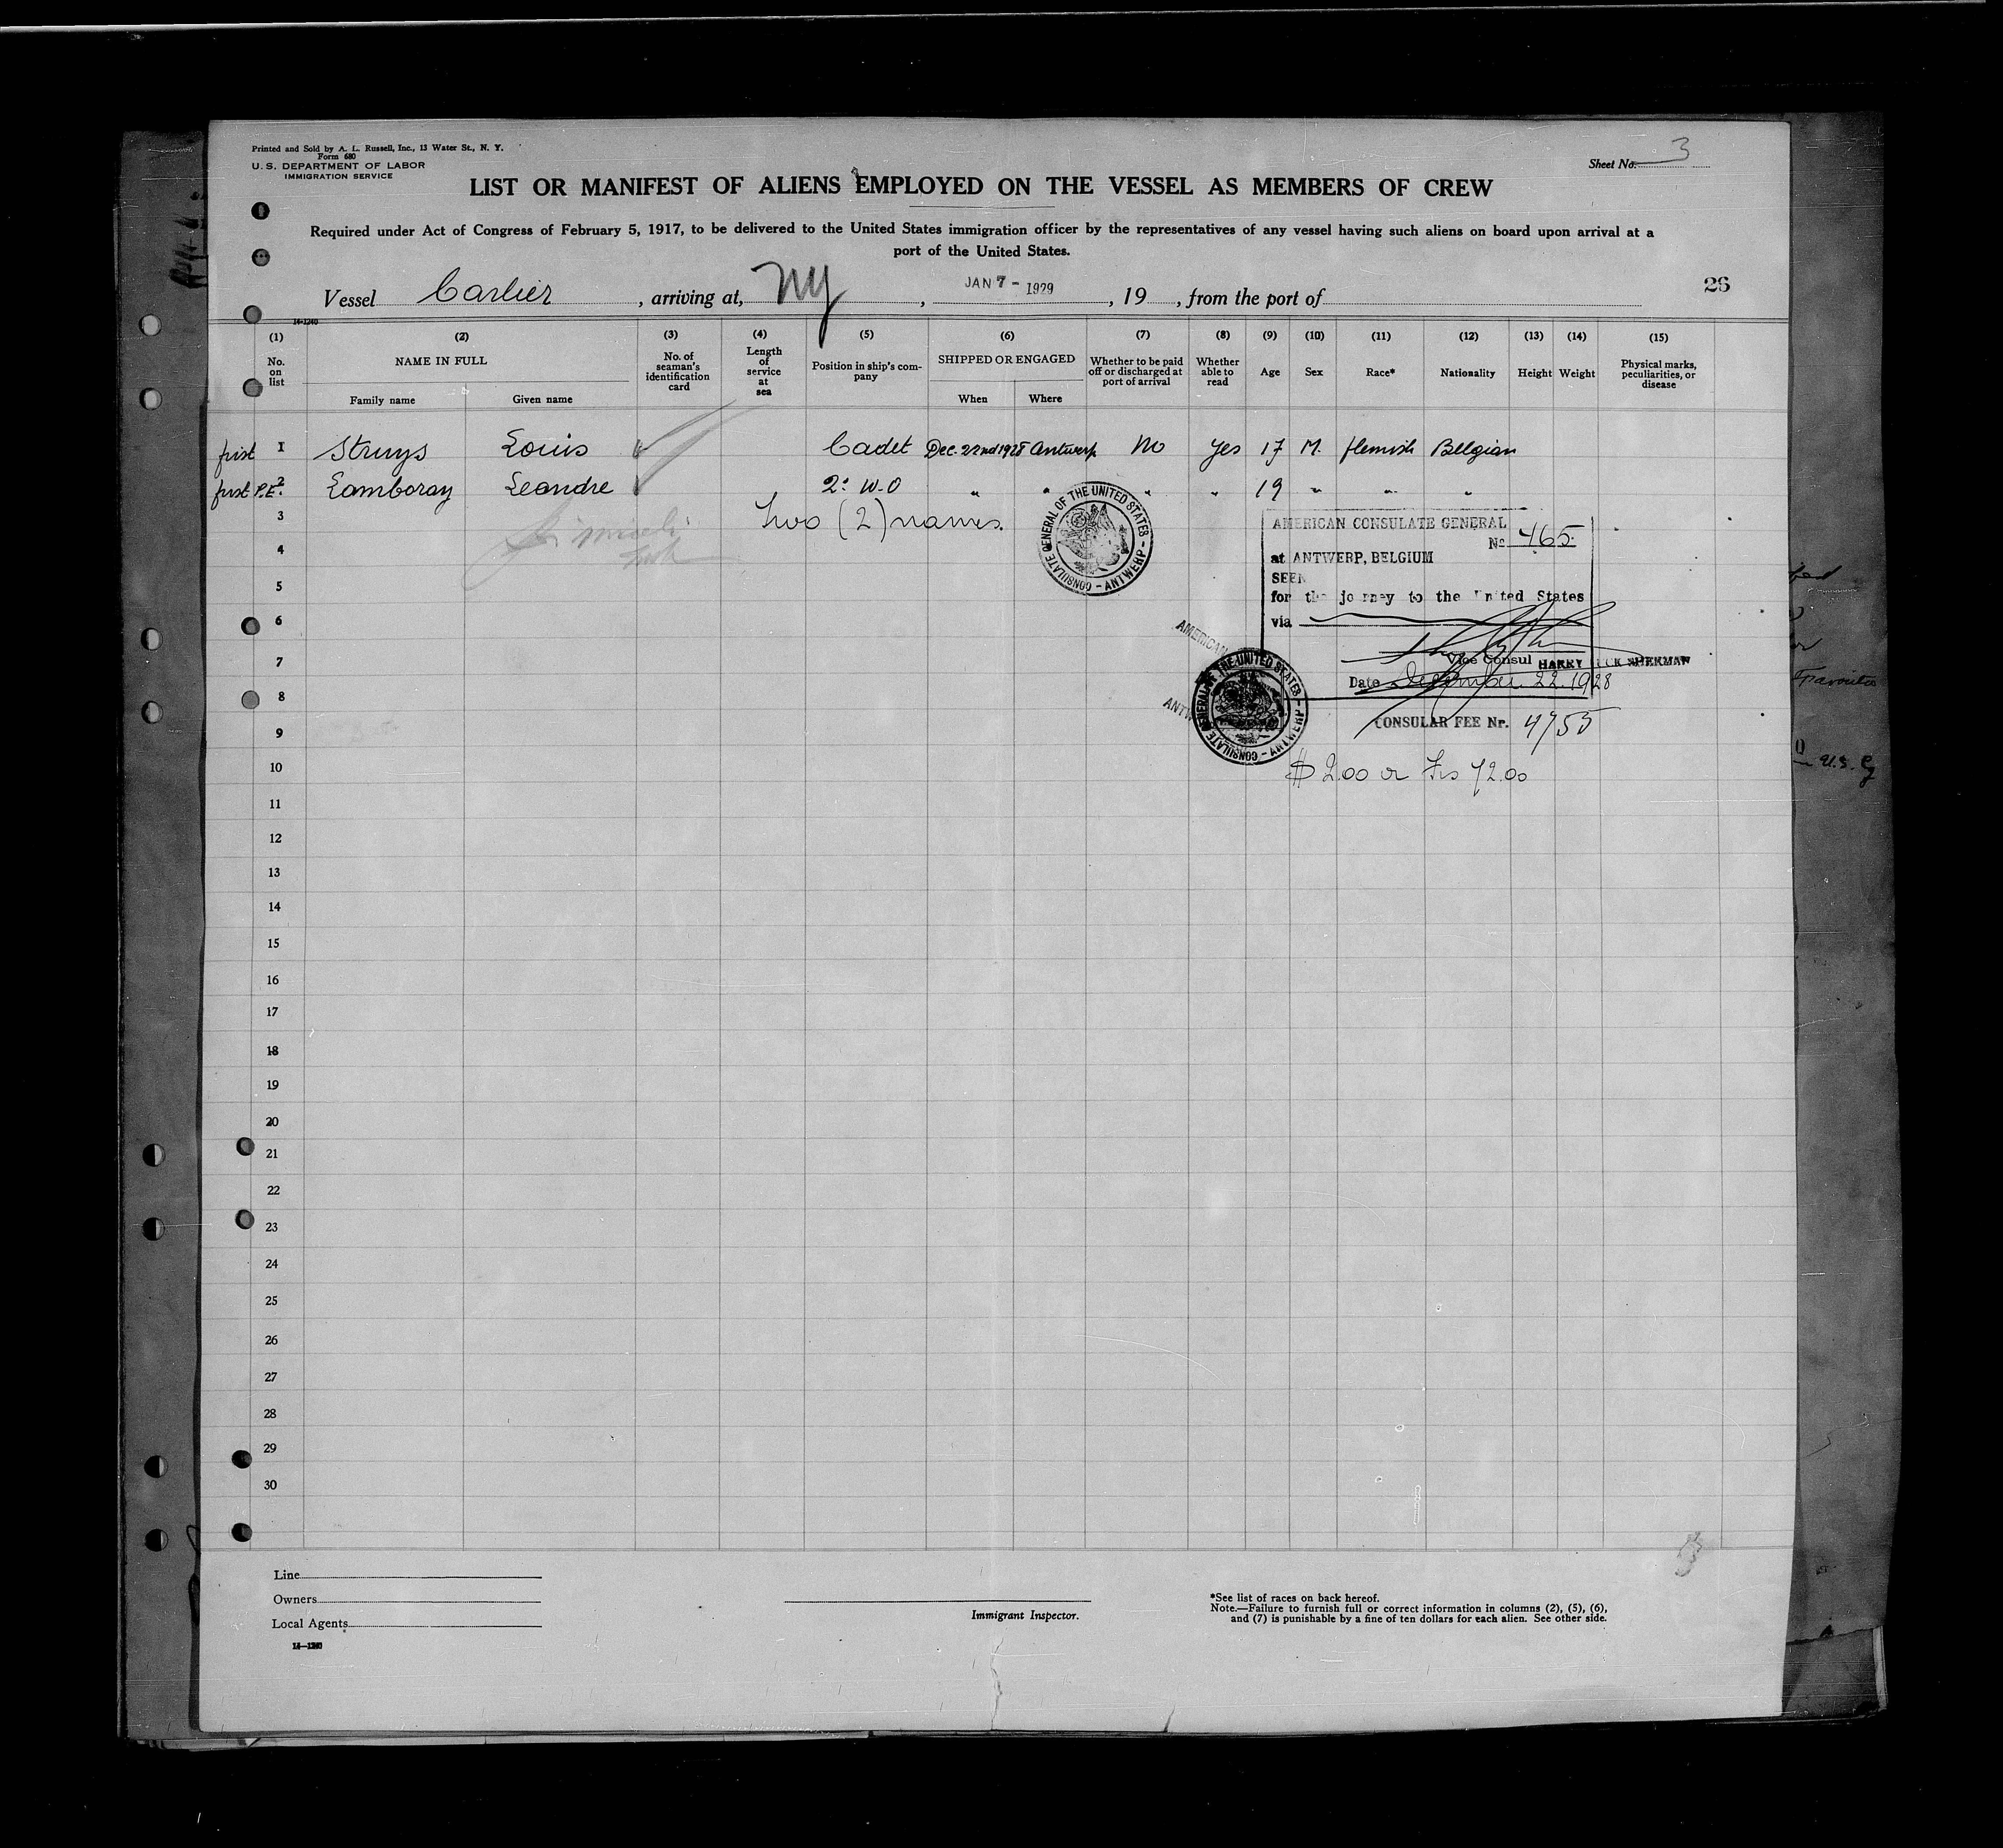 Printed and Sold by A. L. Russell, Inc., 13 Water St., N. Y.
Form 680
U. S. DEPARTMENT OF LABOR
IMMIGRATION SERVICE
Sheet No. 3
LIST OR MANIFEST OF ALIENS EMPLOYED ON THE VESSEL AS MEMBERS OF CREW
Required under Act of Congress of February 5, 1917, to be delivered to the United States immigration officer by the representatives of any vessel having such aliens on board upon arrival at a
port of the United States.
Vessel Carlier, arriving at, NY, JAN 7 - 1929, 19, from the port of
26
14-1240
(1) (2) (3) (4) (5) (6) (7) (8) (9) (10) (11) (12) (13) (14) (15)
No. on list
NAME IN FULL
Family name
Given name
No. of seaman's identification card
Length of service at sea
Position in ship's company
SHIPPED OR ENGAGED
When
Where
Whether to be paid off or discharged at port of arrival
Whether able to read
Age
Sex
Race*
Nationality
Height
Weight
Physical marks, peculiarities, or disease
first 1 Struys Louis Cadet Dec. 22nd 1928 Antwerp No Yes 17 M. flemish Belgian
first P.E. 2 Lamboray Leandre 2: W.O " " " " 19 " " "
3
Two (2) names.
4
5
6
7
8
9
10
11
12
13
14
15
16
17
18
19
20
21
22
23
24
25
26
27
28
29
30
CONSULATE GENERAL OF THE UNITED STATES - ANTWERP -
AMERICAN CONSULATE GENERAL
No 465
at ANTWERP, BELGIUM
SEEN
for the journey to the United States
via
Vice Consul HARRY TUCK SHERMAN
Date December 22 1928
AMERICAN
ANTW
CONSULATE GENERAL OF THE UNITED STATES - ANTWERP -
CONSULAR FEE Nr. 4755
$ 2.00 or Frs 72.00
U.S. Cy
Line
Owners
Local Agents
14-1240
Immigrant Inspector.
*See list of races on back hereof.
Note.—Failure to furnish full or correct information in columns (2), (5), (6),
and (7) is punishable by a fine of ten dollars for each alien. See other side.